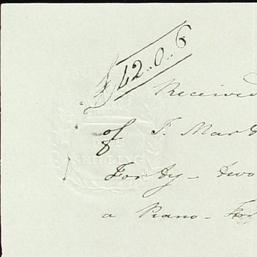 £42.0.6
Received
of T. Mar
Forty-two
a Piano-For